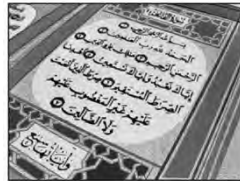 بِسْمِ اللَّهِ الرَّحْمَٰنِ الرَّحِيمِ ۝١
الْحَمْدُ لِلَّهِ رَبِّ الْعَالَمِينَ ۝٢
الرَّحْمَٰنِ الرَّحِيمِ ۝٣ مَالِكِ يَوْمِ الدِّينِ ۝٤
إِيَّاكَ نَعْبُدُ وَإِيَّاكَ نَسْتَعِينُ ۝٥ اهْدِنَا
الصِّرَاطَ الْمُسْتَقِيمَ ۝٦ صِرَاطَ الَّذِينَ أَنْعَمْتَ
عَلَيْهِمْ غَيْرِ الْمَغْضُوبِ عَلَيْهِمْ
وَلَا الضَّالِّينَ ۝٧
وآياتها سبع